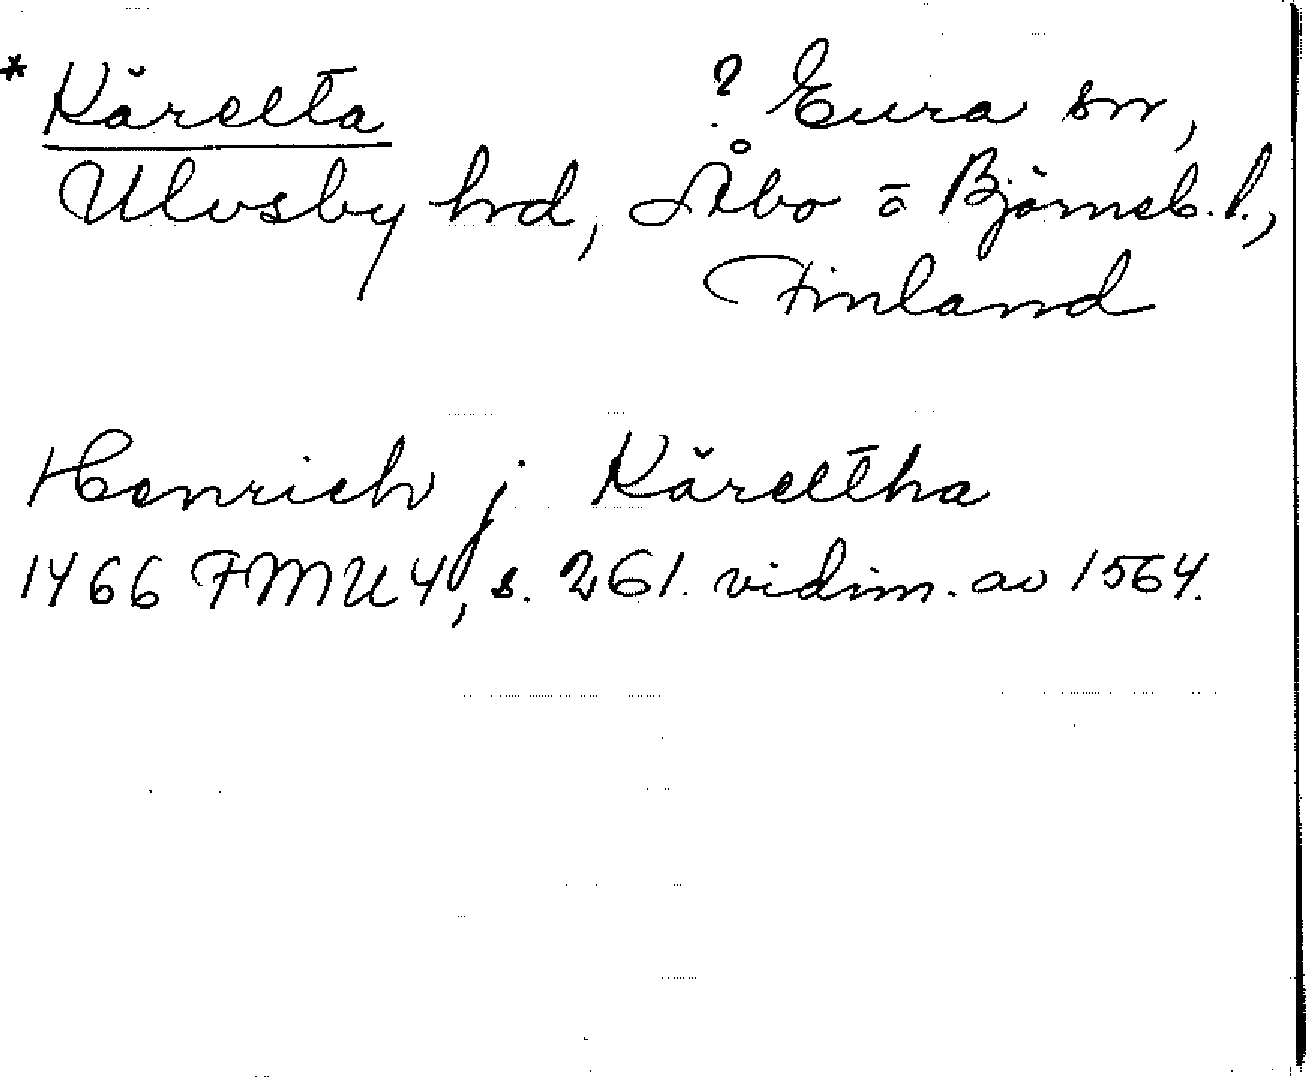 * Kärelta ? Eura sn,
Ulvsby hrd, Åbo o Björneb. l.,
Finland
Henrich j Käreltha
1466 FMU 4, s. 261. vidim. av 1564.